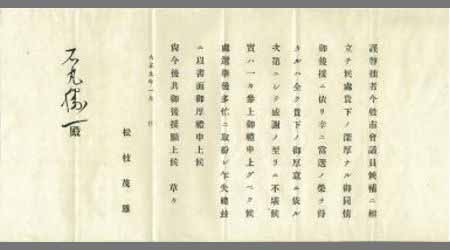 謹啓拙者今般市會議員候補ニ相
立チ候處貴下ノ深厚ナル御同情
御後援ニ依リ幸ニ當選ノ榮ヲ得
タルハ全ク貴下ノ御厚意ニ依ル
次第ニシテ感謝ノ至リニ不堪候
實ハ一々參上御禮申上グベク候
處選擧後多忙ニ取紛レ乍失禮玆
ニ以書面御厚禮申上候
尙今後共御後援願上候 草々
松枝茂雄
殿